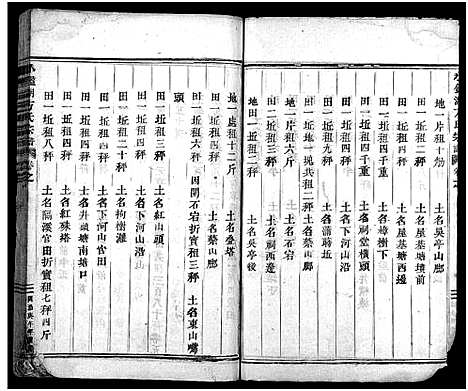 地一片租十觔　土名吳亭山廊
田一坵　土名屋基塘墳前
田一坵　土名屋基塘西邊
田一坵租四千重　土名樟樹下
田一坵租四千重　土名祠堂塘
田一坵　土名蒲蒔坵
地一坵一塊共租二秤　土名蔡山廊
地一坵租二秤　土名石宕
地一坵租二秤　土名祠西邊
地田一坵租二秤　土名吳亭後
地一處租十二斤　土名叠塔
田一坵租三秤　土名蔡山廊
田一坵租六秤　因開石宕折實租三秤　土名東山嘴
頭
田一坵租四秤　土名下河山沿
田一坵租二十秤　土名枸樹灘
田一坵租十二秤　土名下河山官田
田一坵租六秤　土名井頭塘南塘口
田一坵租三秤　土名紅殊塔
田一坵租八秤　土名隔溪官田折實租七秤四斤
方氏宗譜　卷之